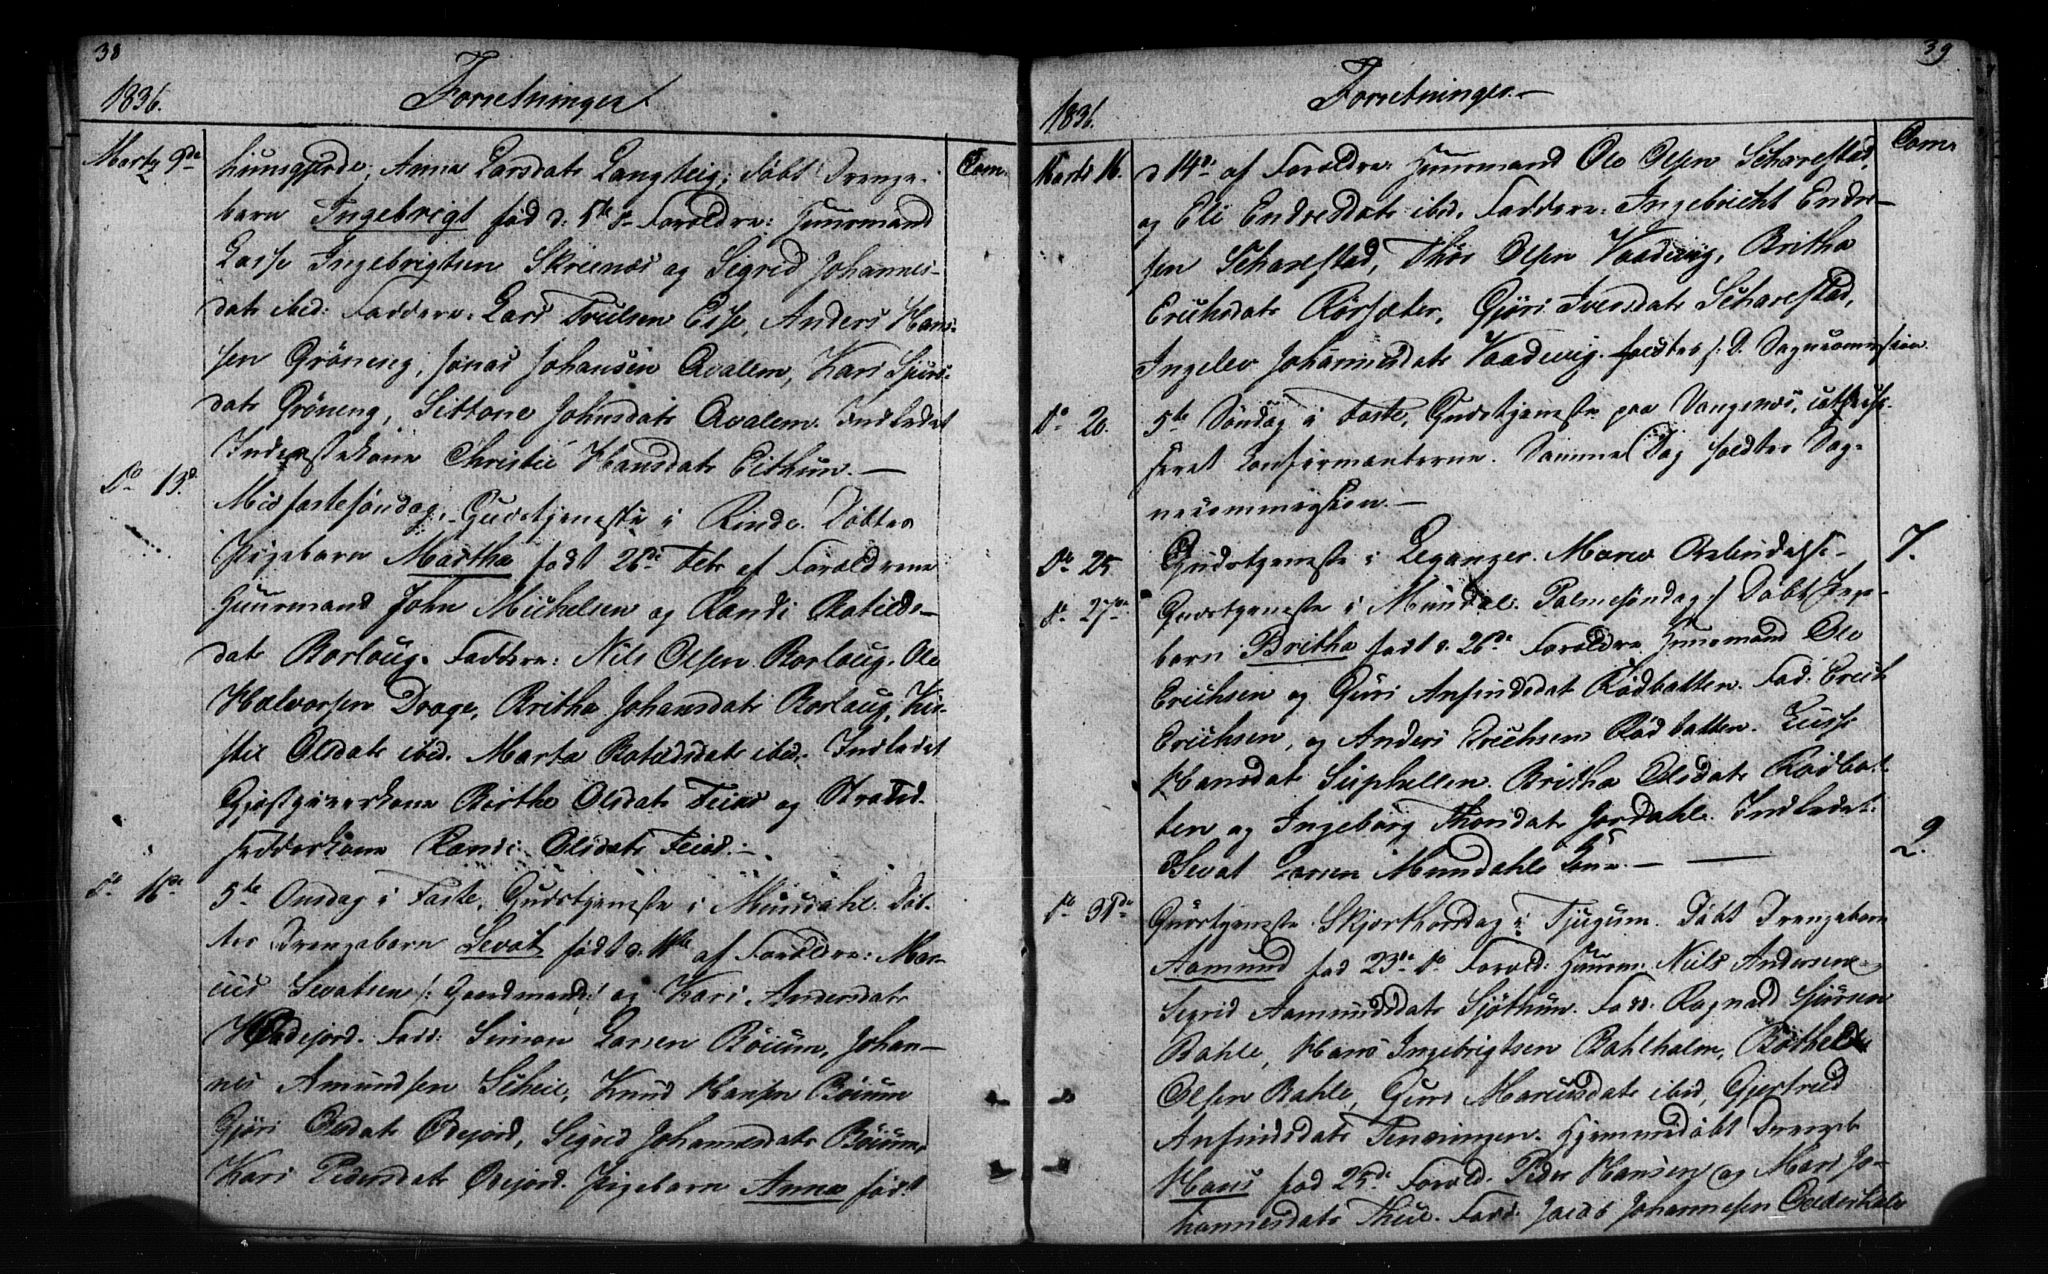 38
1836.
Forretninger
Com.
Marty 9de
huusgjerde, Anna Larsdatr Langteig; Døbt Drenge-
barn Ingebrigt fød d: 5te Forældre: Huusmand
Lasse Ingebrigtsen Skreenæs og Sigrid Johannes-
datr ibid: Faddere: Lars Truelsen Esse, Anders Han-
sen Grøneng, Jonas Johansen Qvalem, Kari Siurs-
datr Grøneng, Sittone Johnsdatr Qvalem. Indledet
Inderstekone Christie Hansdatr Eithun. —
Do 13d
Midfastesøndag. Gudstjeneste i Rinde. Døbtes
Pigebarn Martha født 26de Febr af Forældrene
Huusmand John Michelsen og Randi Botilds-
datr Borlaug. Faddere: Nils Olsen Borlaug, Ole
Halvorsen Drage, Britha Johansdatr Borlaug, Kir-
stie Olsdatr ibid. Marta Botoldsdatr ibid. Indledet
Gjestgiverkone Brithe Olsdatr Feios og
Randi Olsdatr Feios. —
Do 16de
5te Onsdag i Faste, Gudstjeneste i Mundahl. Døb-
tes Drengebarn Sevat født d. 11te af Forældre: Mar-
cus Sevatsen /: Gaardmand :/ og Kari Andersdatr
Ødejord. Fadd: Simon Larsen Bøium, Johan-
nes Amundsen Scheie, Knud Hansen Bøium
Gjøri Olsdatr Ødejord, Sigrid Johannesdatr Bøium,
Kari Pedersdatr Ødejord. Pigebarn Anna født
39
1836.
Forretninger. —
Com.
Marti 16.
d 14de af Forældre Huusmand Ole Olsen Scharestad,
og Eli Endresdatr ibid. Faddere: Ingebricht Endre-
sen Scharestad, Thos Olsen Vaadevig, Britha
Erichsdatr Rørsæter, Gjøri Iversdatr Scharestad,
Ingelev Johannesdatr Vaadevig. holdtes s: D. Sognecommission
Do 20.
5te Søndag i Faste, Gudstjeneste paa Vangsnæs, catechise-
seret Confirmanterne. Samme Dag holdtes Sog-
necommission. —
Do 25.
Gudstjeneste i Leganger. Mariæ Bebudelse-
7.
Do 27de
Gudstjeneste i Mundal. Palmesøndag :/ Døbt Pige-
barn Britha født d. 26de Forældre Huusmand Ole
Erichsen og Guri Anfindsdat Rødbatten. Fad. Erich
Erichsen, og Anders Erichsen Rødbatten.
Hansdat Suphellen. Britha Olsdatr Rødbat-
ten og Ingeborg Thorsdatr Jordahl. Indledet:
Sevat Larsen Mundahls Kone. —
2.
Do 31de
Gudstjeneste Skjærthorsdag i Tjugum. Døbt Drengebarn
Aamund fød 23de Do Foræld: Huusm: Niels Andersen
Sigrid Aamundsdatr Sjøthun. Fadd: Ragnald Siursen
Bahle, Hans Ingebrigtsen Bahlholm, Bothold
Olsen Bahle, Guri Marcusdatr ibid, Gjertrud
Anfindsdatr Tenningen. Hjemmedøbt Drengeb.
Hans fød 25de Foræld. Peder Hansen og Mari Jo-
hannesdatr Thue. Fadd. Jacob Johannesen